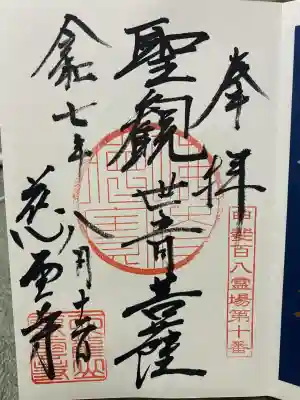 奉拝
甲斐百八霊場第十番
聖観世音菩薩
令和七年八月十日
慈雲寺